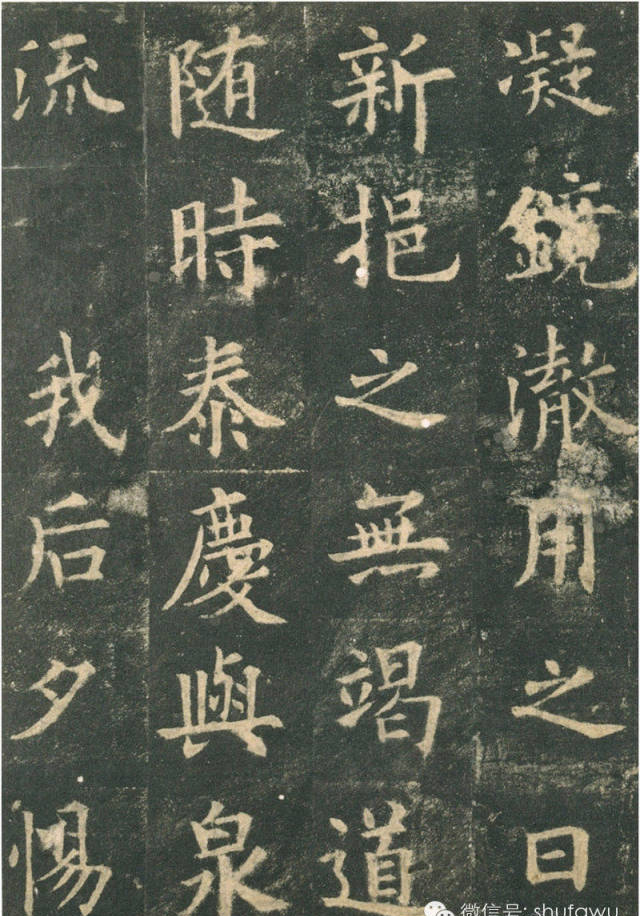 凝鏡澈用之日
新挹之無竭道
随時泰慶與泉
流我后夕惕
微信号: shufawu